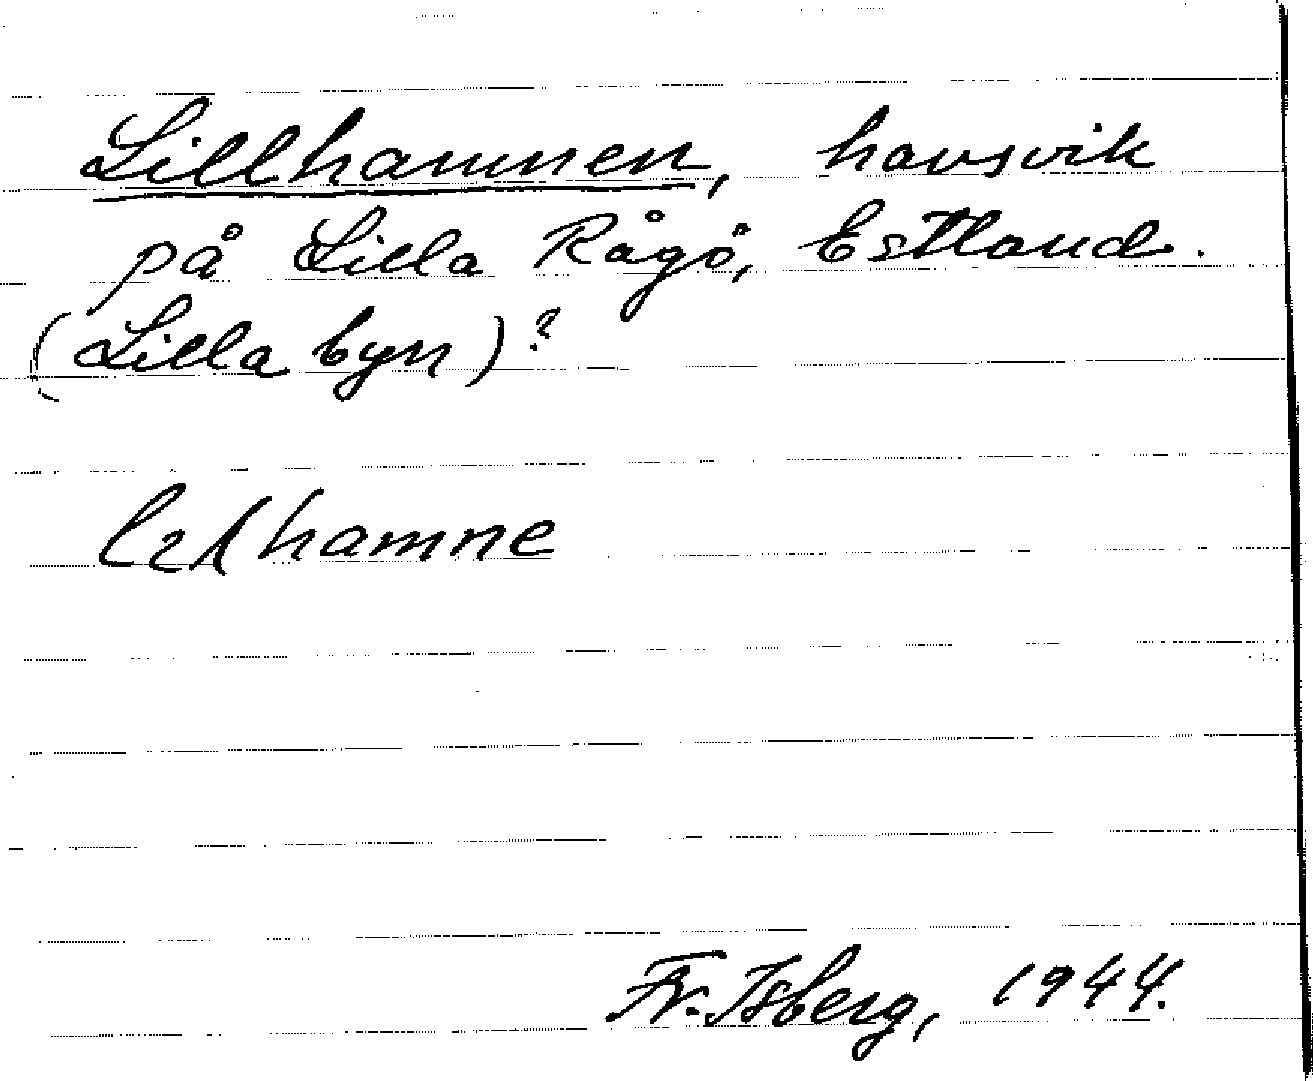 Lillhamnen, havsvik
på Lilla Rågö, Estland.
(Lilla byn)?
hamne
Fr. Isberg, 1944.